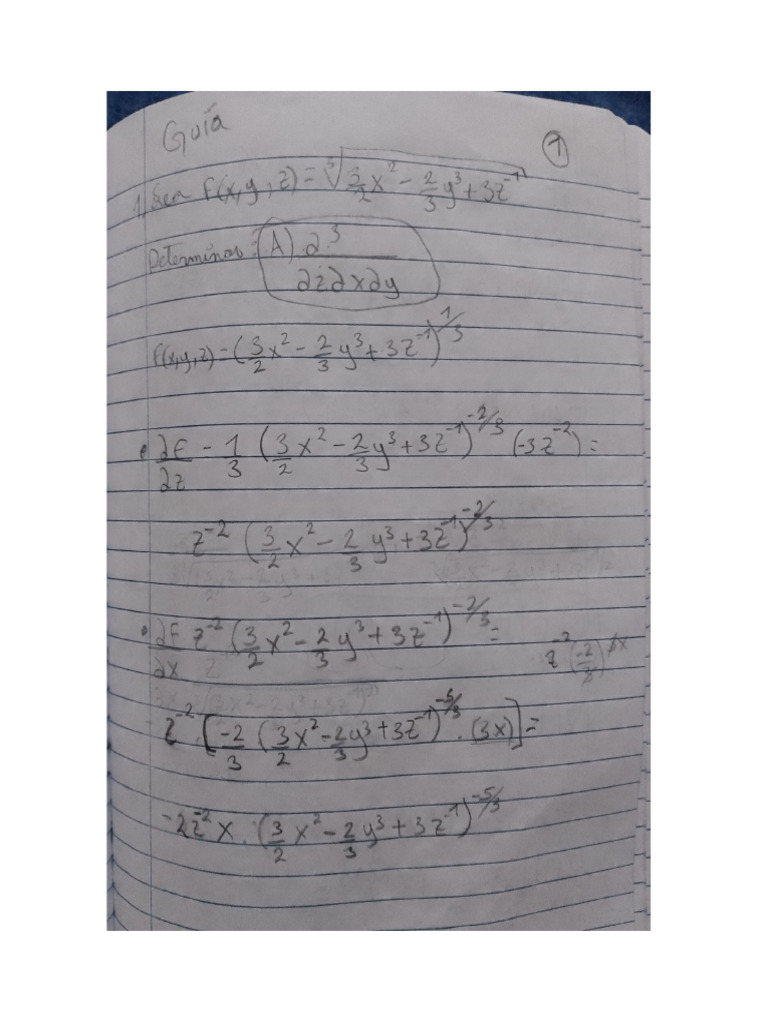 Guía
①
1. Sea f(x,y,z) = ∛(3/2 x² - 2/3 y³ + 3z⁻¹)
Determinar: (A) ∂³/∂z∂x∂y
f(x,y,z) = (3/2 x² - 2/3 y³ + 3z⁻¹)^1/3
• ∂f/∂z - 1/3 (3/2 x² - 2/3 y³ + 3z⁻¹)^-2/3 (-3z⁻²) =
z⁻² (3/2 x² - 2/3 y³ + 3z⁻¹)^-2/3
• ∂f/∂x z⁻² (3/2 x² - 2/3 y³ + 3z⁻¹)^-2/3 =
z⁻² · [-2/3 (3/2 x² - 2/3 y³ + 3z⁻¹)^-5/3 · (3x)] =
-2z⁻² x · (3/2 x² - 2/3 y³ + 3z⁻¹)^-5/3